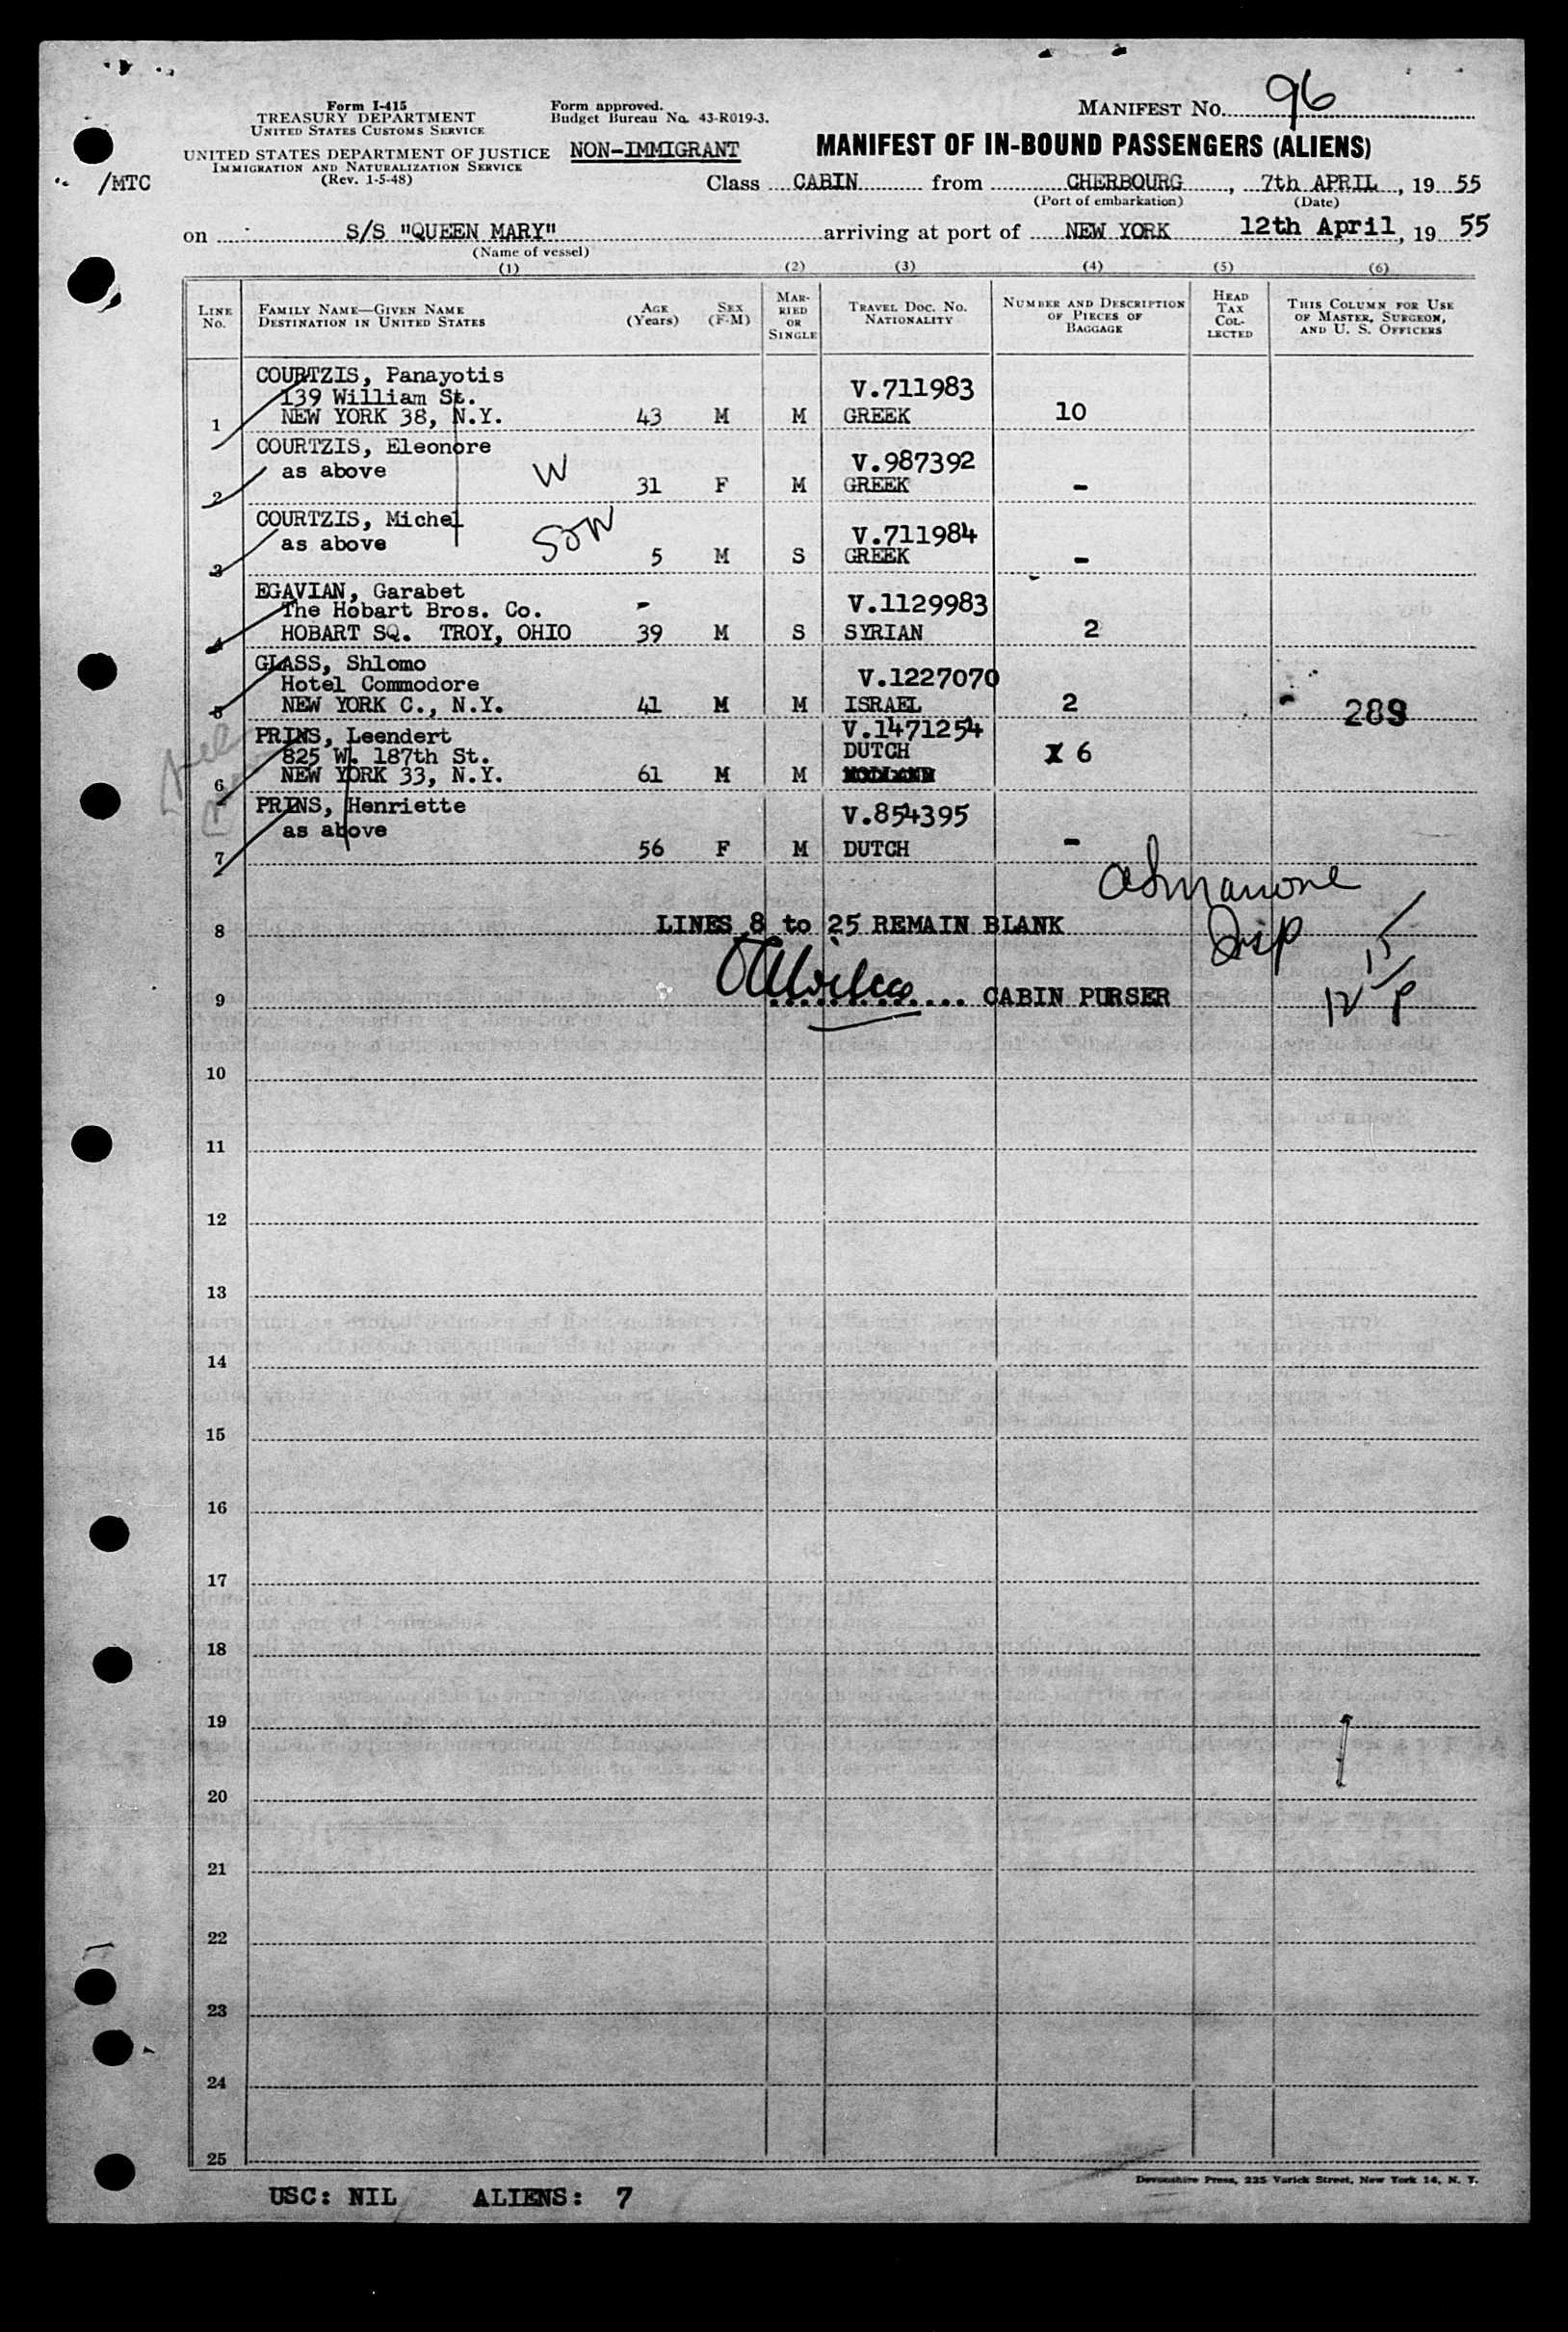 Form I-415
TREASURY DEPARTMENT
UNITED STATES CUSTOMS SERVICE
UNITED STATES DEPARTMENT OF JUSTICE
IMMIGRATION AND NATURALIZATION SERVICE
(Rev. 1-5-48)
/MTC
Form approved.
Budget Bureau No. 43-R019-3.
NON-IMMIGRANT
MANIFEST NO. 96
MANIFEST OF IN-BOUND PASSENGERS (ALIENS)
Class CABIN from CHERBOURG, 7th APRIL, 19 55
(Port of embarkation) (Date)
on S/S "QUEEN MARY" arriving at port of NEW YORK 12th April, 19 55
(Name of vessel)
(1) (2) (3) (4) (5) (6)
LINE No. FAMILY NAME—GIVEN NAME DESTINATION IN UNITED STATES AGE (Years) SEX (F-M) MARRIED OR SINGLE TRAVEL DOC. NO. NATIONALITY NUMBER AND DESCRIPTION OF PIECES OF BAGGAGE HEAD TAX COLLECTED THIS COLUMN FOR USE OF MASTER, SURGEON, AND U. S. OFFICERS
COURTZIS, Panayotis V.711983
139 William St.
1 NEW YORK 38, N.Y. 43 M M GREEK 10
COURTZIS, Eleonore V.987392
as above W
2 31 F M GREEK -
COURTZIS, Michel V.711984
as above SON
3 5 M S GREEK -
EGAVIAN, Garabet V.1129983
The Hobart Bros. Co. -
4 HOBART SQ. TROY, OHIO 39 M S SYRIAN 2
GLASS, Shlomo V.1227070
Hotel Commodore
5 NEW YORK C., N.Y. 41 M M ISRAEL 2 289
PRINS, Leendert V.1471254
825 W. 187th St. DUTCH X 6
6 NEW YORK 33, N.Y. 61 M M
PRINS, Henriette V.854395
as above
7 56 F M DUTCH -
8 LINES 8 to 25 REMAIN BLANK
9 CABIN PURSER
10
11
12
13
14
15
16
17
18
19
20
21
22
23
24
25
Devonshire Press, 225 Varick Street, New York 14, N. Y.
USC: NIL ALIENS: 7